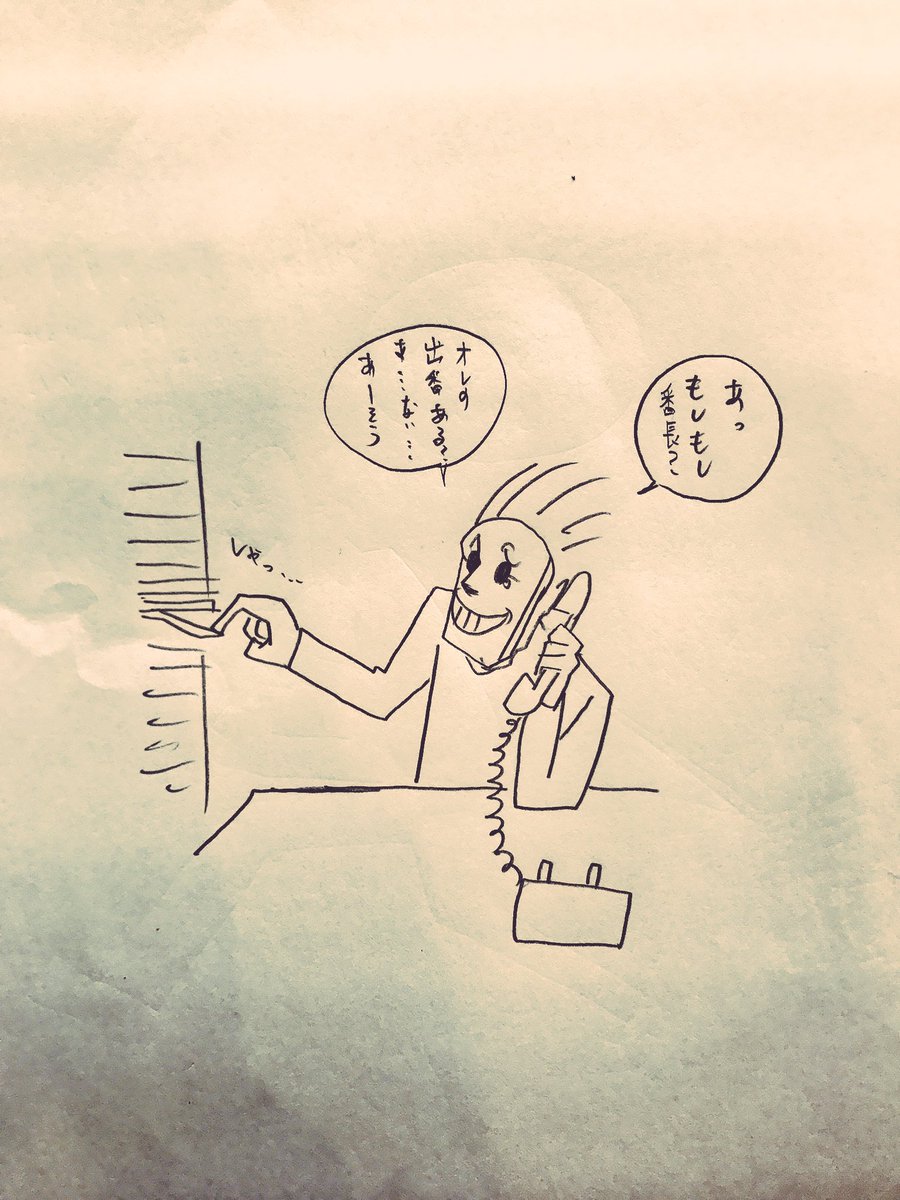 あっ
もしもし
番長？
オレの
出番ある？
あ…ない…
あーそう
しゃっ…